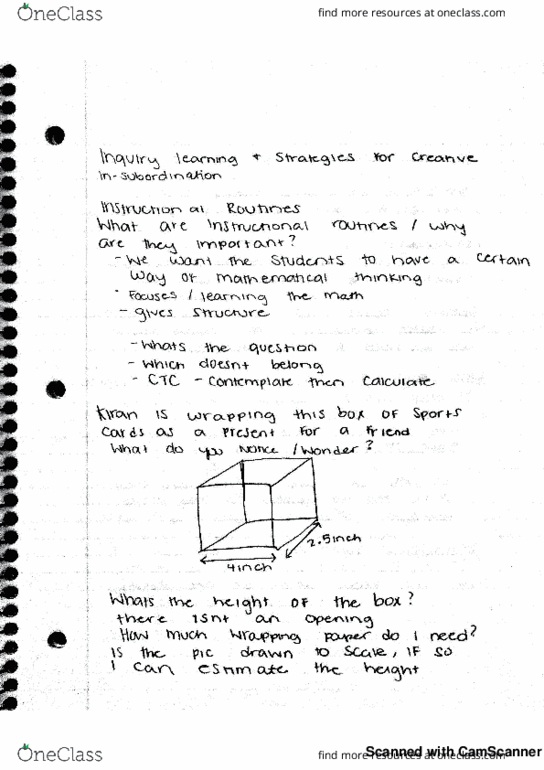 OneClass
find more resources at oneclass.com
Inquiry learning + Strategies for Creative
in-subordination
Instructional Routines
What are instructional routines / why
are they important?
- We want the students to have a certain
way of mathematical thinking
- Focuses / learning the math
- gives structure
- Whats the question
- Which doesnt belong
- CTC - Contemplate then Calculate
Kiran is wrapping this box of Sports
Cards as a present for a friend
What do you notice / wonder?
2.5inch
4inch
Whats the height of the box?
there isnt an opening
How much wrapping paper do I need?
Is the pic drawn to scale, if so
I can estimate the height
OneClass
find more resources at oneclass.com
Scanned with CamScanner